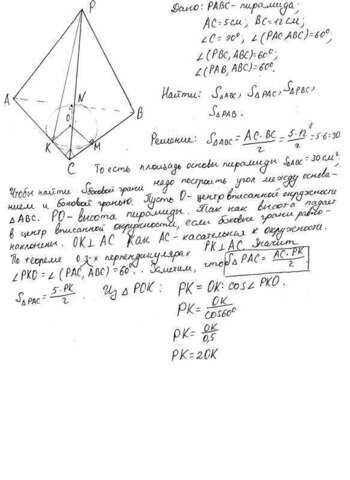 P
A
N
O
B
K
M
C
Дано: PABC - пирамида;
AC = 5см; BC = 12см;
∠C = 90°, ∠(PAC,ABC) = 60°,
∠(PBC, ABC) = 60°;
∠(PAB, ABC) = 60°.
Найти: S△ABC, S△PAC, S△PBC,
S△PAB.
Решение: S△ABC = AC·BC/2 = 5·12/2 = 5·6 = 30
То есть площадь основы пирамиды S△ABC = 30 см²,
Чтобы найти Sбоковой грани надо построить угол между основа-
нием и боковой гранью. Пусть O - центр вписанной окружности
△ABC. PO - высота пирамиды. Так как высота падает
в центр вписанной окружности, если боковые грани равно-
наклонены. OK⊥AC как AC - касательная к окружности.
По теореме о 3-х перпендикулярах PK⊥AC. Значит
∠PKO = ∠(PAC, ABC) = 60°. Заметим, что S△PAC = AC·PK/2.
S△PAC = 5·PK/2. Из △POK: PK = OK·cos∠PKO.
PK = OK/cos60°
PK = OK/0,5
PK = 2OK